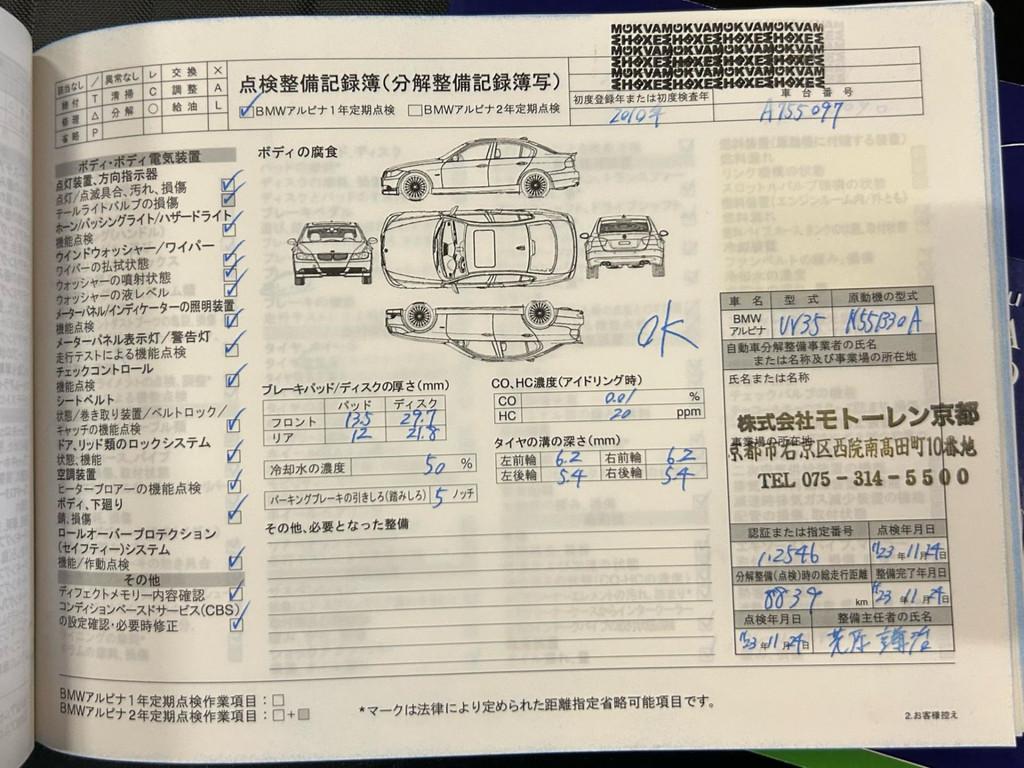 該当なし / 異常なし レ 交換 ×
締付 T 清掃 C 調整 A
修理 △ 分解 ○ 給油 L
省略 P
点検整備記録簿(分解整備記録簿写)
✓BMWアルピナ1年定期点検 □BMWアルピナ2年定期点検
初度登録年または初度検査年 車台番号
2010年 A755097
ボディ・ボディ電気装置
点灯装置、方向指示器
点灯/点滅具合、汚れ、損傷
テールライトバルブの損傷
ホーン/パッシングライト/ハザードライト
機能点検
ウインドウォッシャー/ワイパー
ワイパーの払拭状態
ウォッシャーの噴射状態
ウォッシャーの液レベル
メーターパネル/インディケーターの照明装置
機能点検
メーターパネル表示灯/警告灯
走行テストによる機能点検
チェックコントロール
機能点検
シートベルト
状態/巻き取り装置/ベルトロック/
キャッチの機能点検
ドア、リッド類のロックシステム
状態、機能
空調装置
ヒーターブロアーの機能点検
ボディ、下廻り
錆、損傷
ロールオーバープロテクション
(セイフティー)システム
機能/作動点検
その他
ディフェクトメモリー内容確認
コンディションベースドサービス(CBS)
の設定確認・必要時修正
ボディの腐食
OK
ブレーキパッド/ディスクの厚さ(mm)
パッド ディスク
フロント 13.5 29.7
リア 12 21.8
冷却水の濃度 50 %
パーキングブレーキの引きしろ(踏みしろ) 5 ノッチ
CO、HC濃度(アイドリング時)
CO 0.01 %
HC 20 ppm
タイヤの溝の深さ(mm)
左前輪 6.2 右前輪 6.2
左後輪 5.4 右後輪 5.4
その他、必要となった整備
車名 型式 原動機の型式
BMWアルピナ UV35 N55B30A
自動車分解整備事業者の氏名
または名称及び事業場の所在地
氏名または名称
株式会社モトーレン京都
事業場の所在地
京都市右京区西院南高田町10番地
TEL 075-314-5500
認証または指定番号 点検年月日
1-2546 '23年11月24日
分解整備(点検)時の総走行距離 整備完了年月日
8839 km '23年11月24日
点検年月日 整備主任者の氏名
'23年11月24日
BMWアルピナ1年定期点検作業項目:□
BMWアルピナ2年定期点検作業項目:□+■
*マークは法律により定められた距離指定省略可能項目です。
2.お客様控え